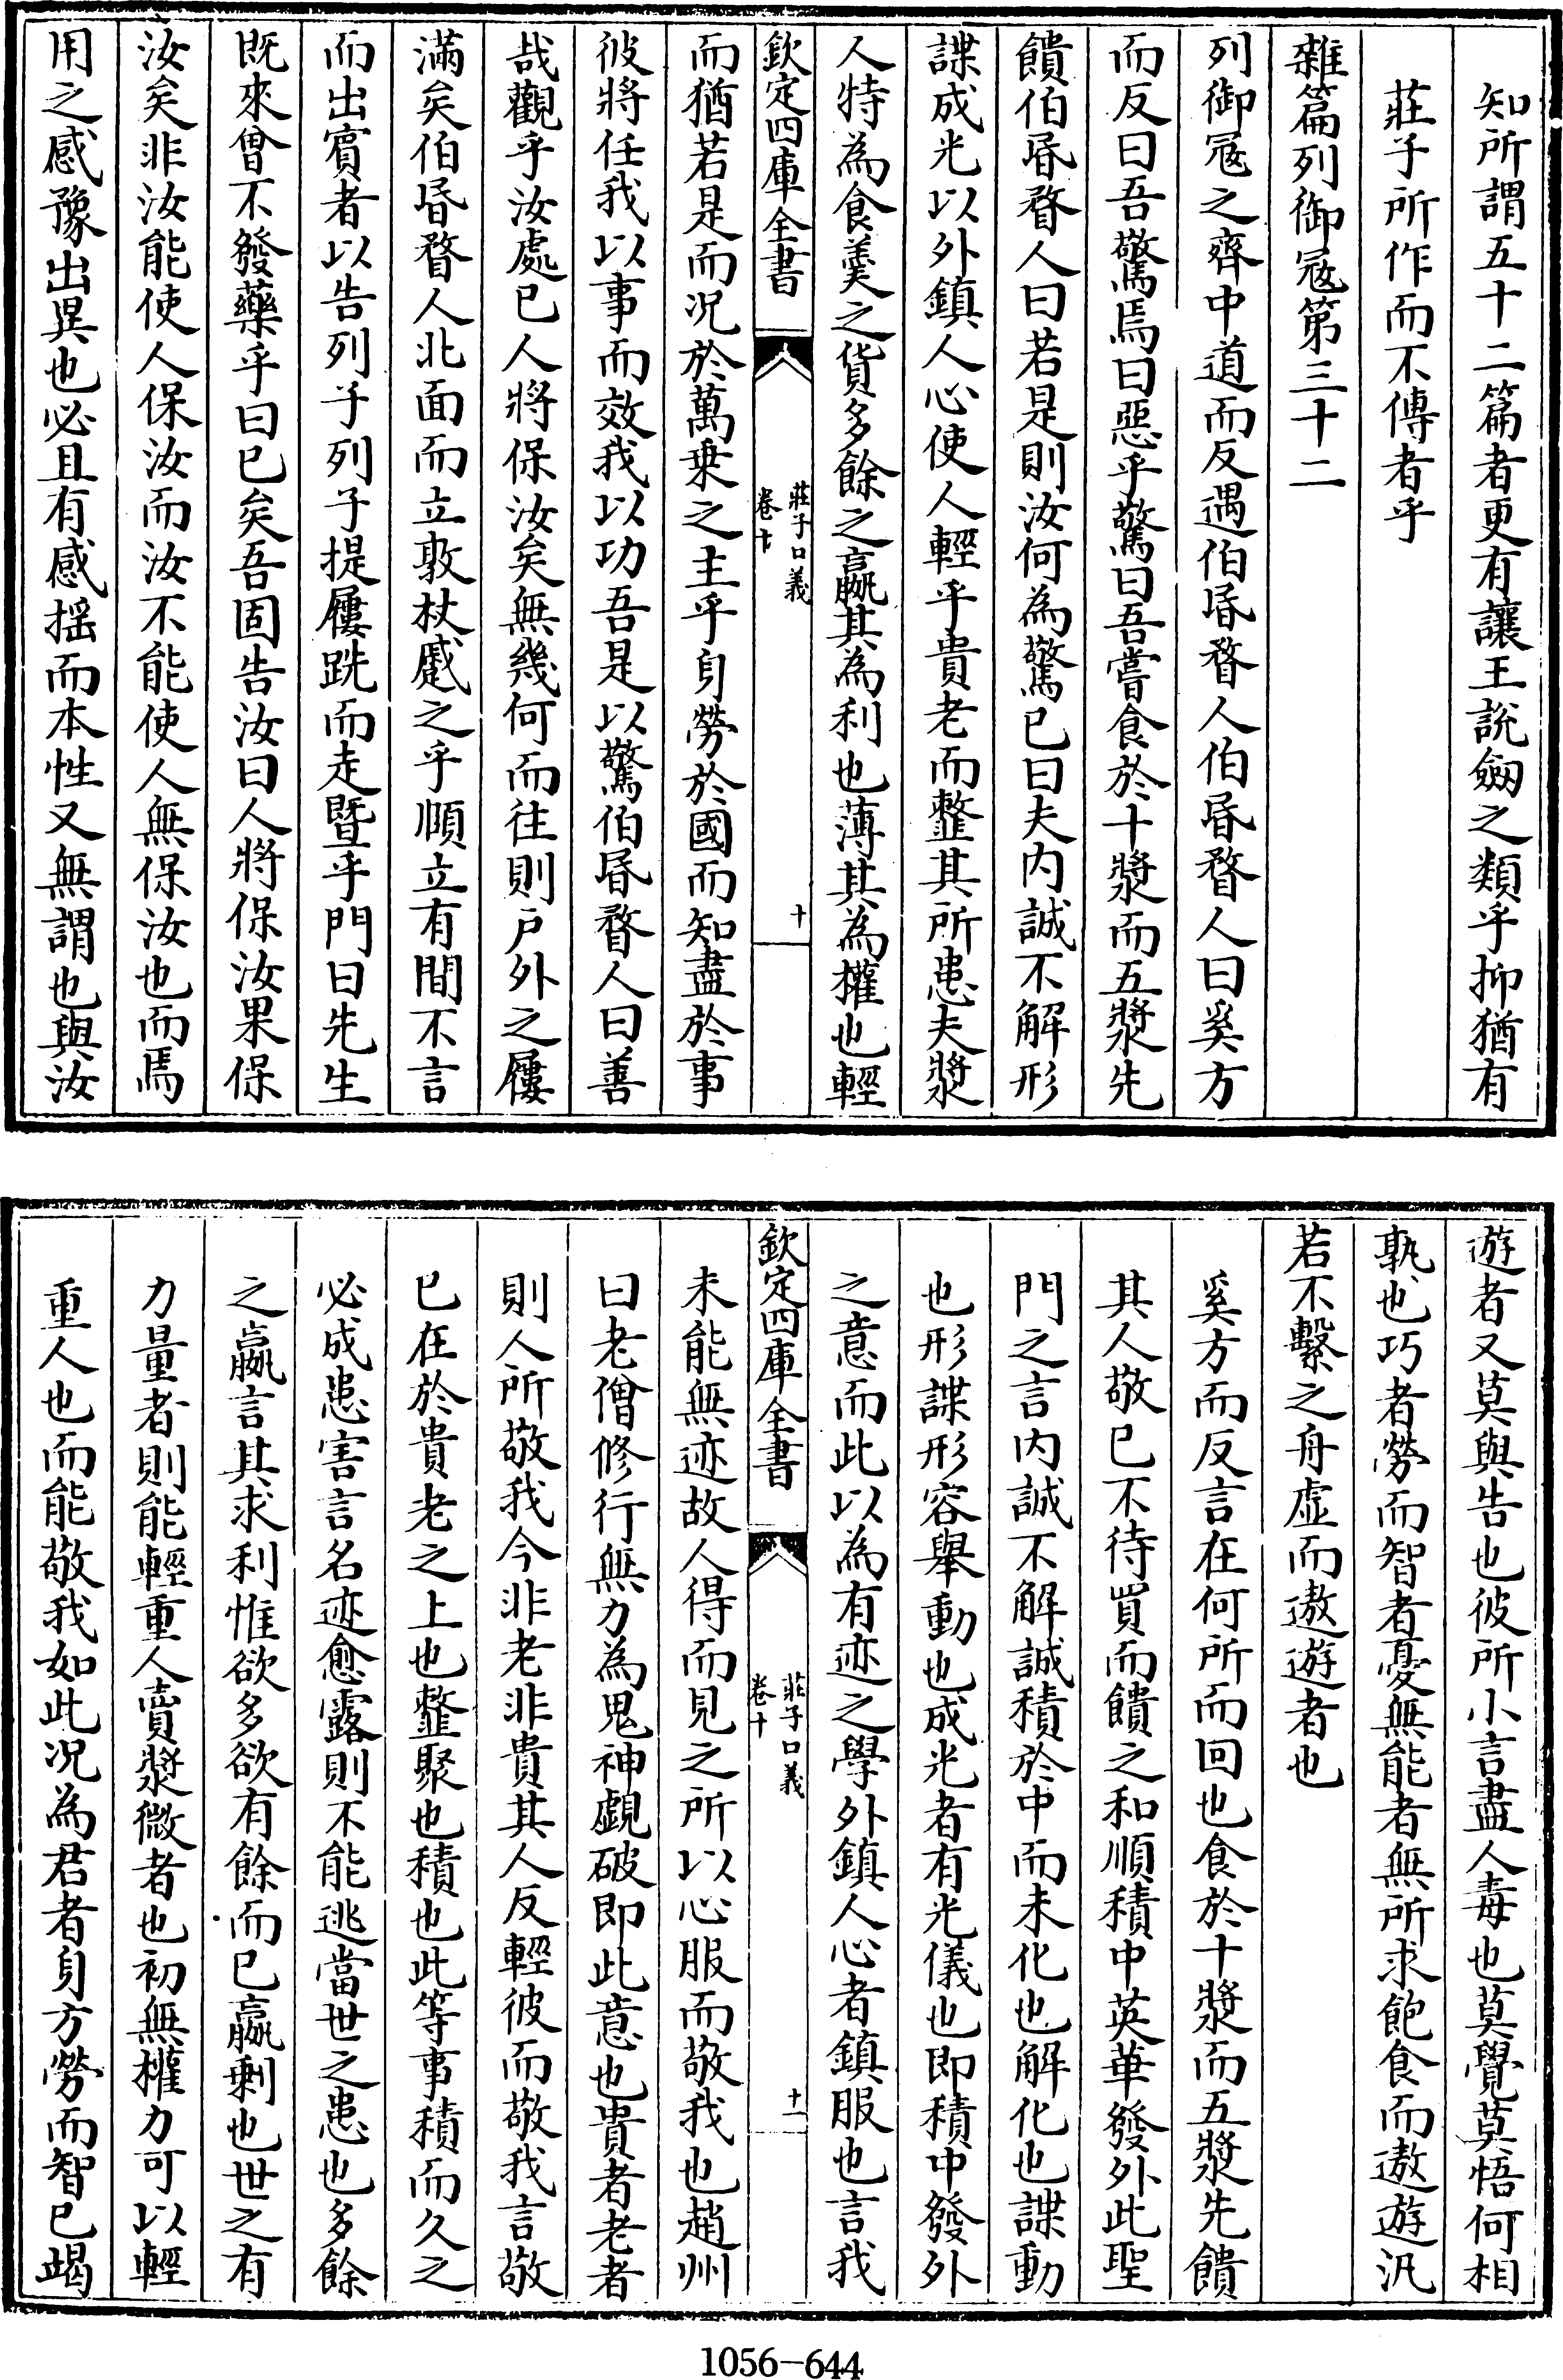 知所謂五十二篇者更有讓王說劔之類乎抑猶有
莊子所作而不傳者乎
雜篇列御冦第三十二
列御冦之齊中道而反遇伯昬瞀人伯昬瞀人曰奚方
而反曰吾驚焉曰惡乎驚曰吾嘗食於十漿而五漿先
饋伯昬瞀人曰若是則汝何為驚已曰夫内誠不解形
諜成光以外鎮人心使人輕乎貴老而䪡其所患夫漿
人特為食羮之貨多餘之贏其為利也薄其為權也輕
欽定四庫全書
莊子口義
卷十
十
而猶若是而况於萬乗之主乎身勞於國而知盡於事
彼將任我以事而效我以功吾是以驚伯昬瞀人曰善
哉觀乎汝處已人將保汝矣無幾何而往則户外之屨
滿矣伯昬瞀人北面而立敦杖蹙之乎頤立有間不言
而出賓者以告列子列子提屨跣而走暨乎門曰先生
既來曾不發藥乎曰已矣吾固告汝曰人將保汝果保
汝矣非汝能使人保汝而汝不能使人無保汝也而焉
用之感豫出異也必且有感摇而本性又無謂也與汝
遊者又莫與告也彼所小言盡人毒也莫覺莫悟何相
孰也巧者勞而智者憂無能者無所求飽食而遨遊汎
若不繫之舟虚而遨遊者也
奚方而反言在何所而回也食於十漿而五漿先饋
其人敬已不待買而饋之和順積中英華發外此聖
門之言内誠不解誠積於中而未化也解化也諜動
也形諜形容舉動也成光者有光儀也即積中發外
之意而此以為有迹之學外鎮人心者鎮服也言我
欽定四庫全書
莊子口義
卷十
十一
未能無迹故人得而見之所以心服而敬我也趙州
曰老僧修行無力為鬼神覷破即此意也貴者老者
則人所敬我今非老非貴其人反輕彼而敬我言敬
已在於貴老之上也䪡聚也積也此等事積而久之
必成患害言名迹愈露則不能逃當世之患也多餘
之贏言其求利惟欲多欲有餘而已贏剩也世之有
力量者則能輕重人賣漿微者也初無權力可以輕
重人也而能敬我如此况為君者身方勞而智已竭
1056-644